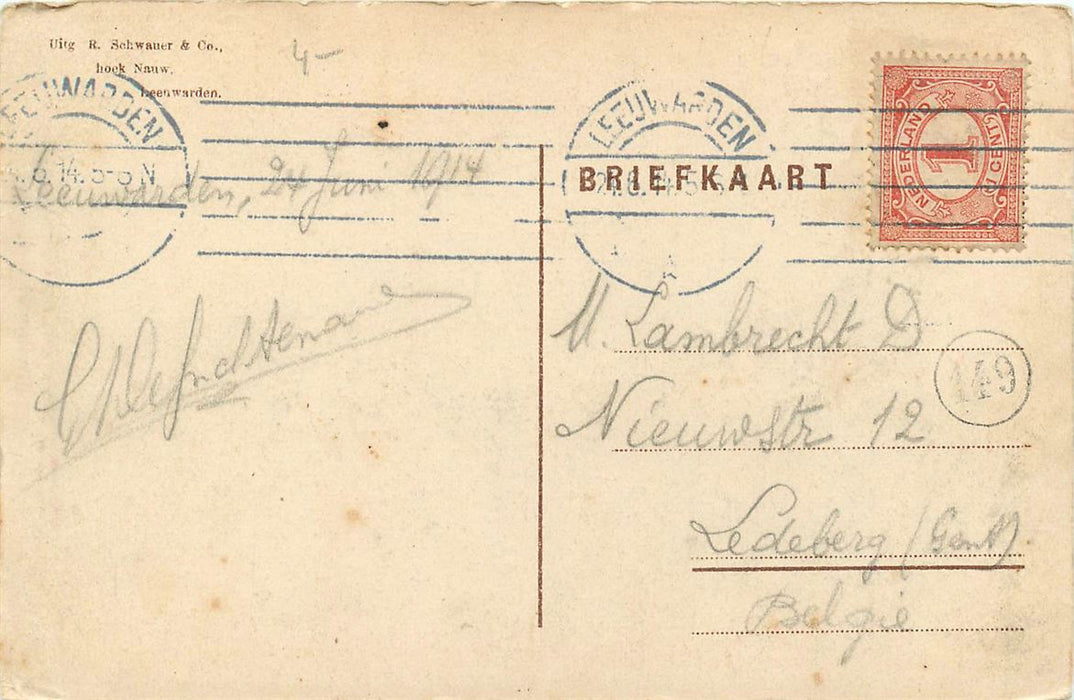 Uitg R. Schwauer & Co.,
hoek Nauw,
Leeuwarden.
4-
LEEUWARDEN
6.14.5-6 N
Leeuwarden, 24 Juni 1914
LEEUWARDEN
BRIEFKAART
NEDERLAND
1
CENT
M. Lambrecht D
Nieuwstr 12
149
Ledeberg (Gent)
België